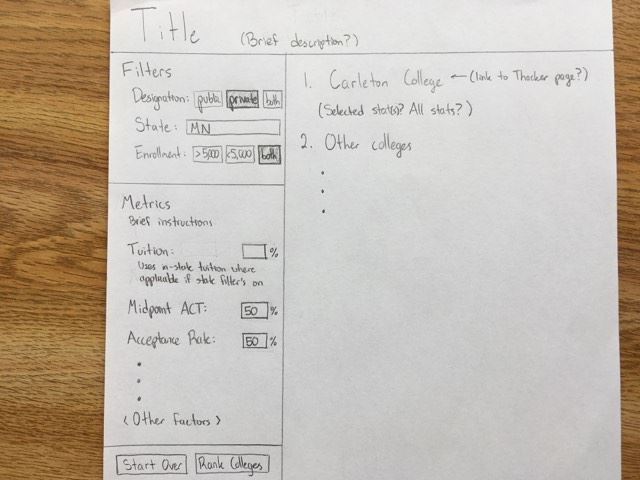 Title (Brief description?)
Filters
Designation: public private both
State: MN
Enrollment: >5,000 <5,000 both
Metrics
Brief instructions
Tuition: %
Uses in-state tuition where
applicable if state filter's on
Midpoint ACT: 50 %
Acceptance Rate: 50 %
<Other Factors>
Start Over Rank Colleges
1. Carleton College ← (link to Thacker page?)
(Selected stat(s)? All stats?)
2. Other colleges